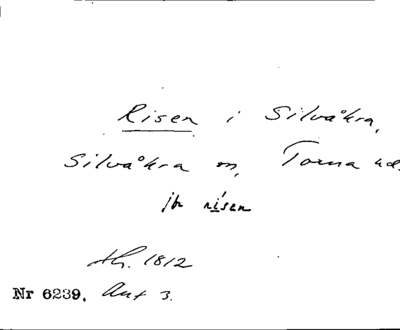 Risen i Silvåkra,
Silvåkra sn, Torna hd.
jb risen
th. 1812
Nr 6239. Ant 3.